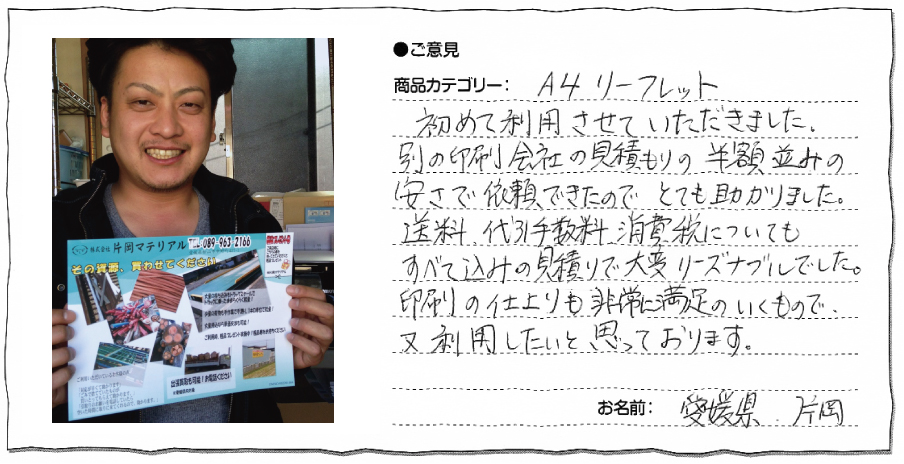 ●ご意見
商品カテゴリー： A4 リーフレット
初めて利用させていただきました。
別の印刷会社の見積もりの半額並みの
安さで依頼できたのでとても助かりました。
送料、代引手数料、消費税についても
すべて込みの見積りで大変リーズナブルでした。
印刷の仕上りも非常に満足のいくもので、
又利用したいと思っております。
お名前： 愛媛県 片岡
株式会社 片岡マテリアル TEL 089-963-2166
その資源、買わせてください
出張買取も可能！お電話ください